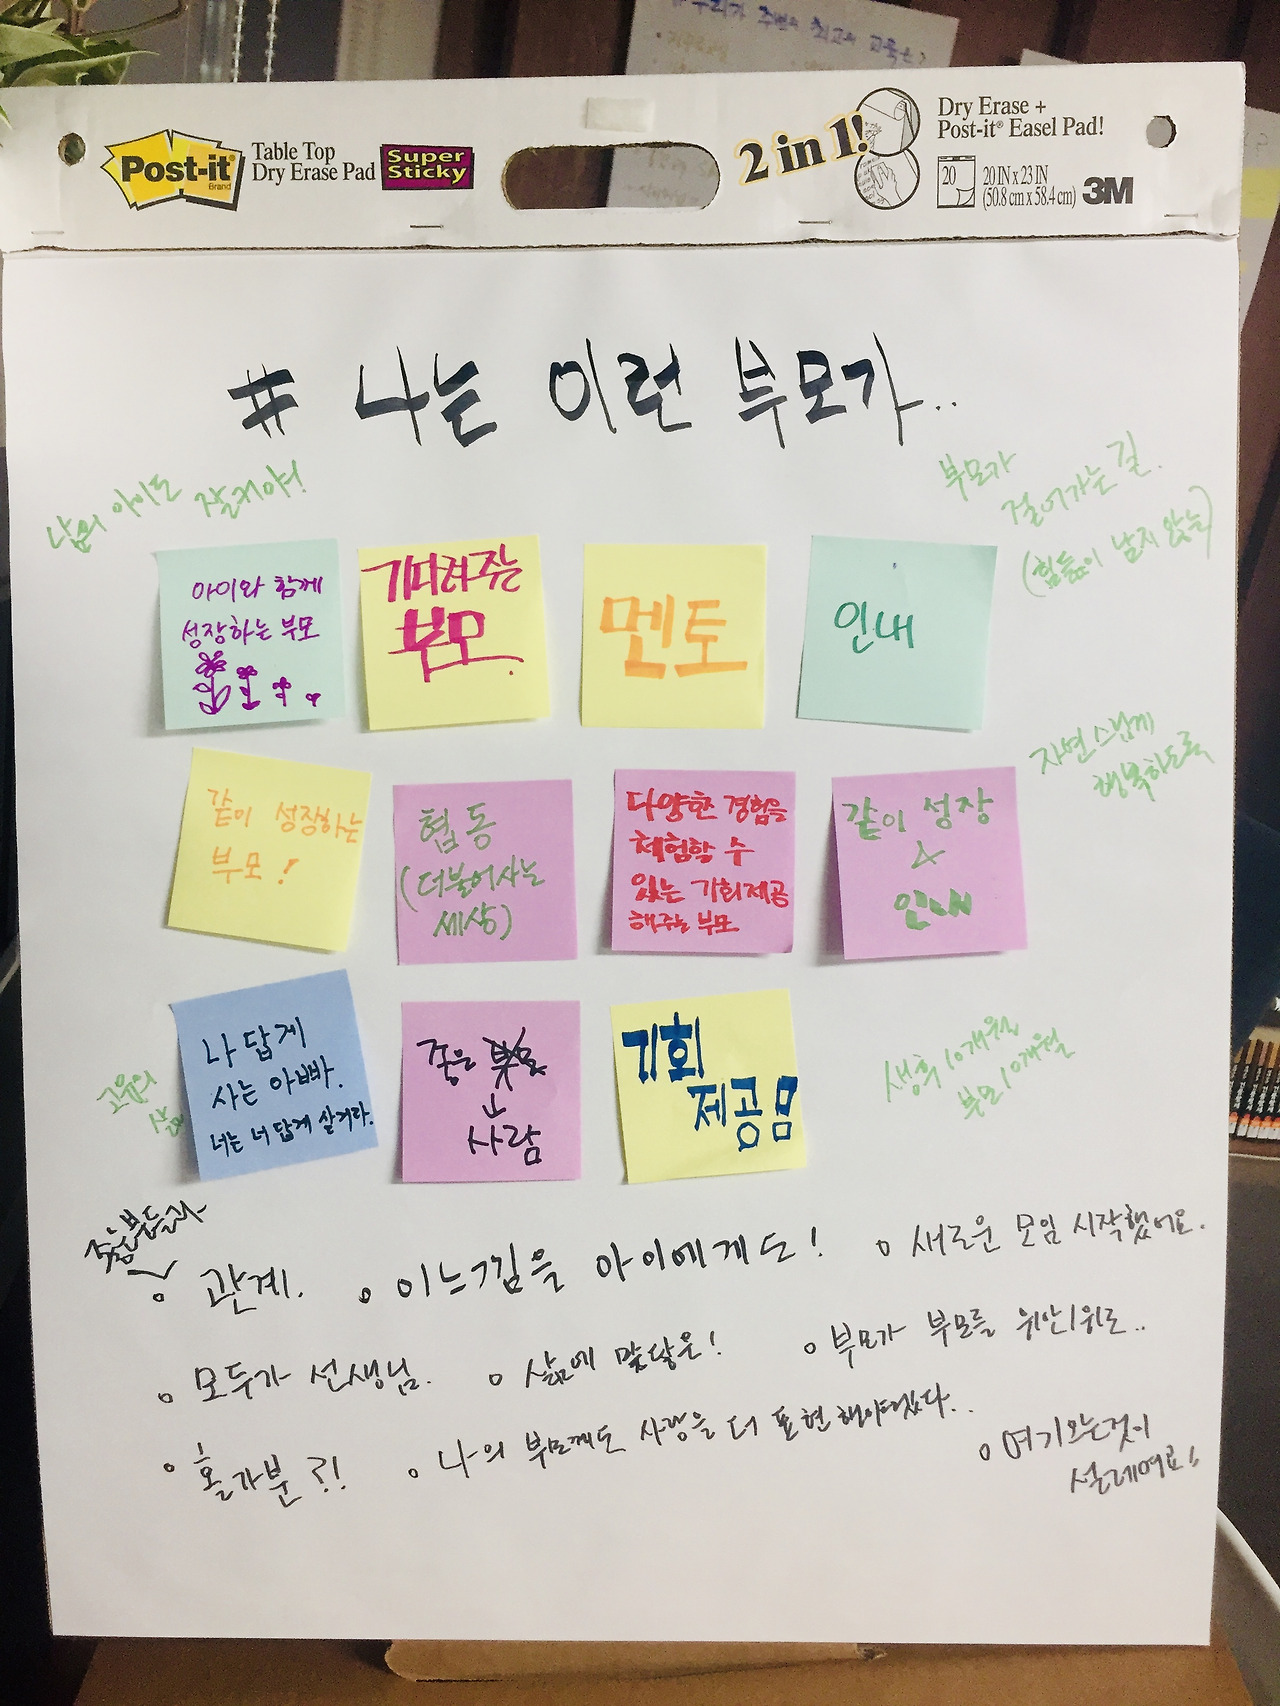 우리가 주변의 최고의 교육은?
Post-it
Brand
Table Top
Dry Erase Pad
Super
Sticky
2 in 1!
Dry Erase +
Post-it® Easel Pad!
20
20 IN x 23 IN
(50.8 cm x 58.4 cm)
3M
# 나는 이런 부모가..
남의 아이도 잘커야!
부모가
걸어가는 길.
(힘듦이 남지 않는)
아이와 함께
성장하는 부모
기다려주는
부모.
멘토
인내
자연스럽게
행복하도록
같이 성장하는
부모!
협동
(더불어사는
세상)
다양한 경험을
체험할 수
있는 기회제공
해주는 부모
같이 성장
&
인내
고유의
삶
나 답게
사는 아빠.
너는 너 답게 살거라.
좋은 부모
↓
사람
기회
제공
생후 10개월
부모 10개월
좋은분들과
관계.
이느낌을 아이에게도!
새로운 모임 시작했어요.
모두가 선생님.
삶에 맞닿은!
부모가 부모를
홀가분?!
나의 부모께도 사랑을 더 표현해야겠다..
여기오는것이
설레여요!